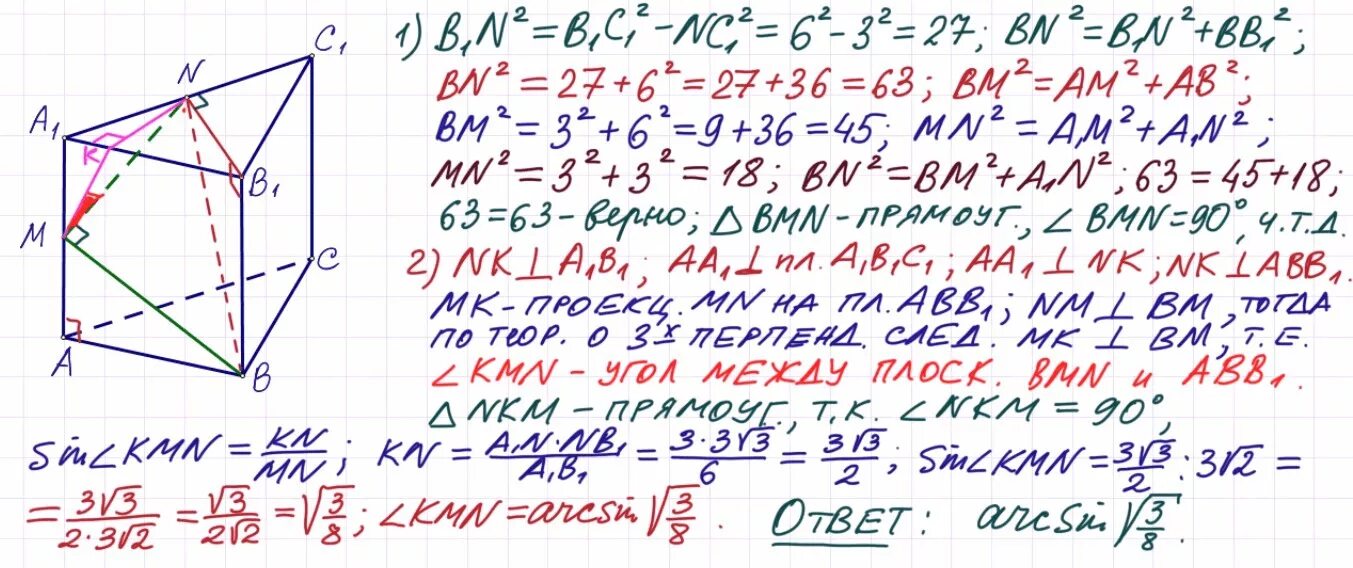 C₁
N
A₁
K
B₁
M
C
A
B
1) B₁N² = B₁C₁² - NC₁² = 6² - 3² = 27; BN² = B₁N² + BB₁²;
BN² = 27 + 6² = 27 + 36 = 63; BM² = AM² + AB²;
BM² = 3² + 6² = 9 + 36 = 45; MN² = A₁M² + A₁N²;
MN² = 3² + 3² = 18; BN² = BM² + A₁N²; 63 = 45 + 18;
63 = 63 - верно; △ BMN - ПРЯМОУГ., ∠ BMN = 90°, ч.т.д.
2) NK ⊥ A₁B₁; AA₁ ⊥ пл. A₁B₁C₁; AA₁ ⊥ NK; NK ⊥ ABB₁.
MK - ПРОЕКЦ. MN НА ПЛ. ABB₁; NM ⊥ BM, ТОГДА
ПО ТЕОР. О 3ˣ ПЕРПЕНД. СЛЕД. MK ⊥ BM, Т.Е.
∠ KMN - УГОЛ МЕЖДУ ПЛОСК. BMN и ABB₁.
△ NKM - ПРЯМОУГ., Т.К. ∠ NKM = 90°,
sin∠KMN = KN/MN; KN = A₁N·NB₁/A₁B₁ = 3·3√3/6 = 3√3/2; sin∠KMN = 3√3/2 : 3√2 =
= 3√3/2·3√2 = √3/2√2 = √3/8; ∠KMN = arcsin √3/8. ОТВЕТ: arcsin √3/8.